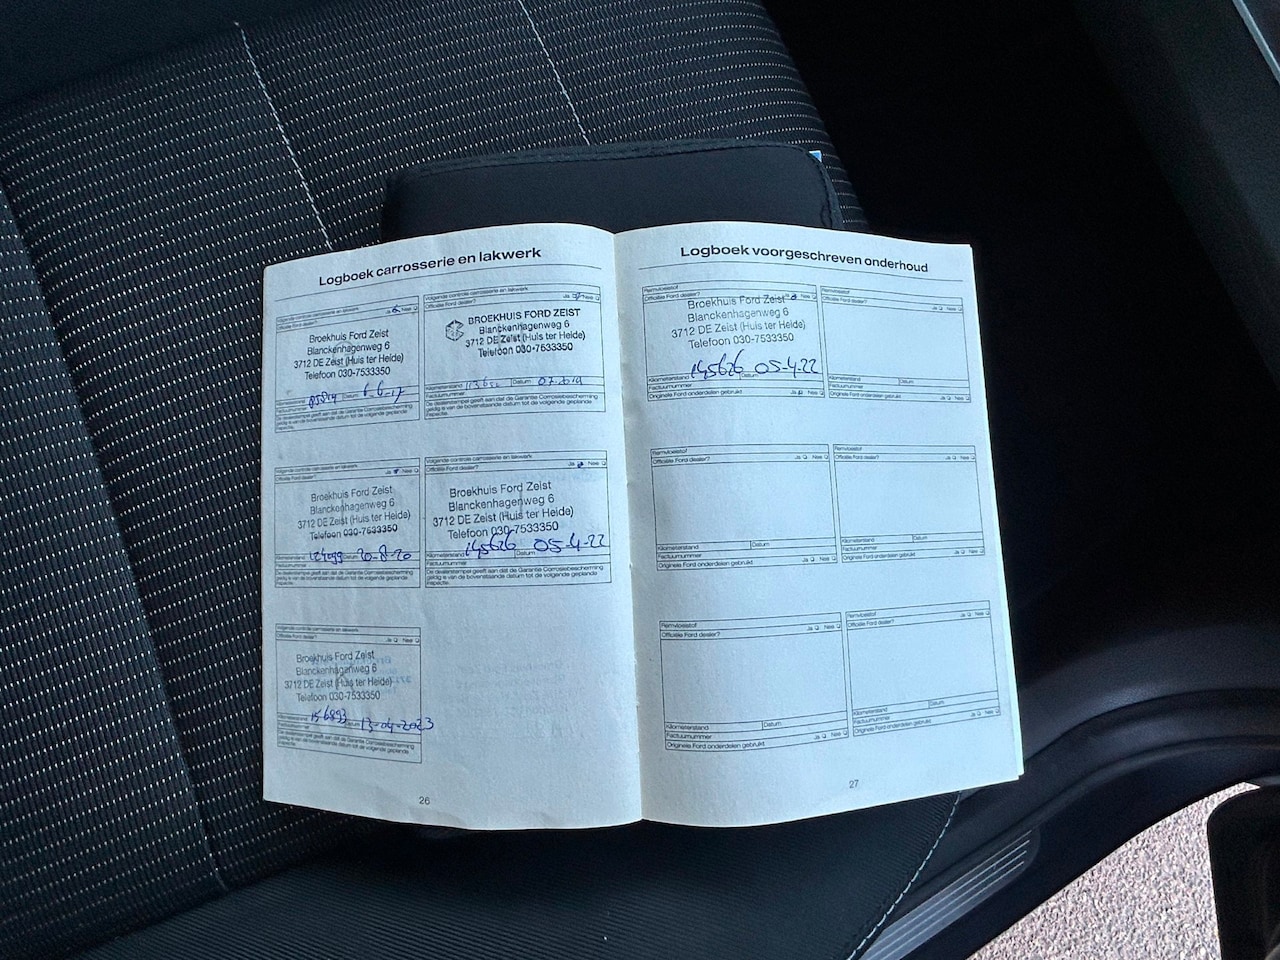 Logboek carrosserie en lakwerk
Volgende controle carrosserie en lakwerk
Officiële Ford dealer? Ja Nee
Broekhuis Ford Zeist
Blanckenhagenweg 6
3712 DE Zeist (Huis ter Heide)
Telefoon 030-7533350
Kilometerstand Datum 6-6-17
Factuurnummer
De dealerstempel geeft aan dat de Garantie Corrosiebescherming
geldig is van de bovenstaande datum tot de volgende geplande
inspectie.
Volgende controle carrosserie en lakwerk
Officiële Ford dealer? Ja Nee
BROEKHUIS FORD ZEIST
Blanckenhagenweg 6
3712 DE Zeist (Huis ter Heide)
Telefoon 030-7533350
Kilometerstand Datum
Factuurnummer
De dealerstempel geeft aan dat de Garantie Corrosiebescherming
geldig is van de bovenstaande datum tot de volgende geplande
inspectie.
Volgende controle carrosserie en lakwerk
Officiële Ford dealer? Ja Nee
Broekhuis Ford Zeist
Blanckenhagenweg 6
3712 DE Zeist (Huis ter Heide)
Telefoon 030-7533350
Kilometerstand Datum 20-8-20
Factuurnummer
De dealerstempel geeft aan dat de Garantie Corrosiebescherming
geldig is van de bovenstaande datum tot de volgende geplande
inspectie.
Volgende controle carrosserie en lakwerk
Officiële Ford dealer? Ja Nee
Broekhuis Ford Zeist
Blanckenhagenweg 6
3712 DE Zeist (Huis ter Heide)
Telefoon 030-7533350
Kilometerstand 145626 Datum 05-4-22
Factuurnummer
De dealerstempel geeft aan dat de Garantie Corrosiebescherming
geldig is van de bovenstaande datum tot de volgende geplande
inspectie.
Volgende controle carrosserie en lakwerk
Officiële Ford dealer? Ja Nee
Broekhuis Ford Zeist
Blanckenhagenweg 6
3712 DE Zeist (Huis ter Heide)
Telefoon 030-7533350
Kilometerstand 156893 Datum 13-04-2023
Factuurnummer
De dealerstempel geeft aan dat de Garantie Corrosiebescherming
geldig is van de bovenstaande datum tot de volgende geplande
inspectie.
26
Logboek voorgeschreven onderhoud
Remvloeistof
Officiële Ford dealer? Ja Nee
Broekhuis Ford Zeist
Blanckenhagenweg 6
3712 DE Zeist (Huis ter Heide)
Telefoon 030-7533350
Kilometerstand 145626 Datum 05-4-22
Factuurnummer
Originele Ford onderdelen gebruikt Ja Nee
Remvloeistof
Officiële Ford dealer? Ja Nee
Kilometerstand Datum
Factuurnummer
Originele Ford onderdelen gebruikt Ja Nee
Remvloeistof
Officiële Ford dealer? Ja Nee
Kilometerstand Datum
Factuurnummer
Originele Ford onderdelen gebruikt Ja Nee
Remvloeistof
Officiële Ford dealer? Ja Nee
Kilometerstand Datum
Factuurnummer
Originele Ford onderdelen gebruikt Ja Nee
Remvloeistof
Officiële Ford dealer? Ja Nee
Kilometerstand Datum
Factuurnummer
Originele Ford onderdelen gebruikt Ja Nee
Remvloeistof
Officiële Ford dealer? Ja Nee
Kilometerstand Datum
Factuurnummer
Originele Ford onderdelen gebruikt Ja Nee
27